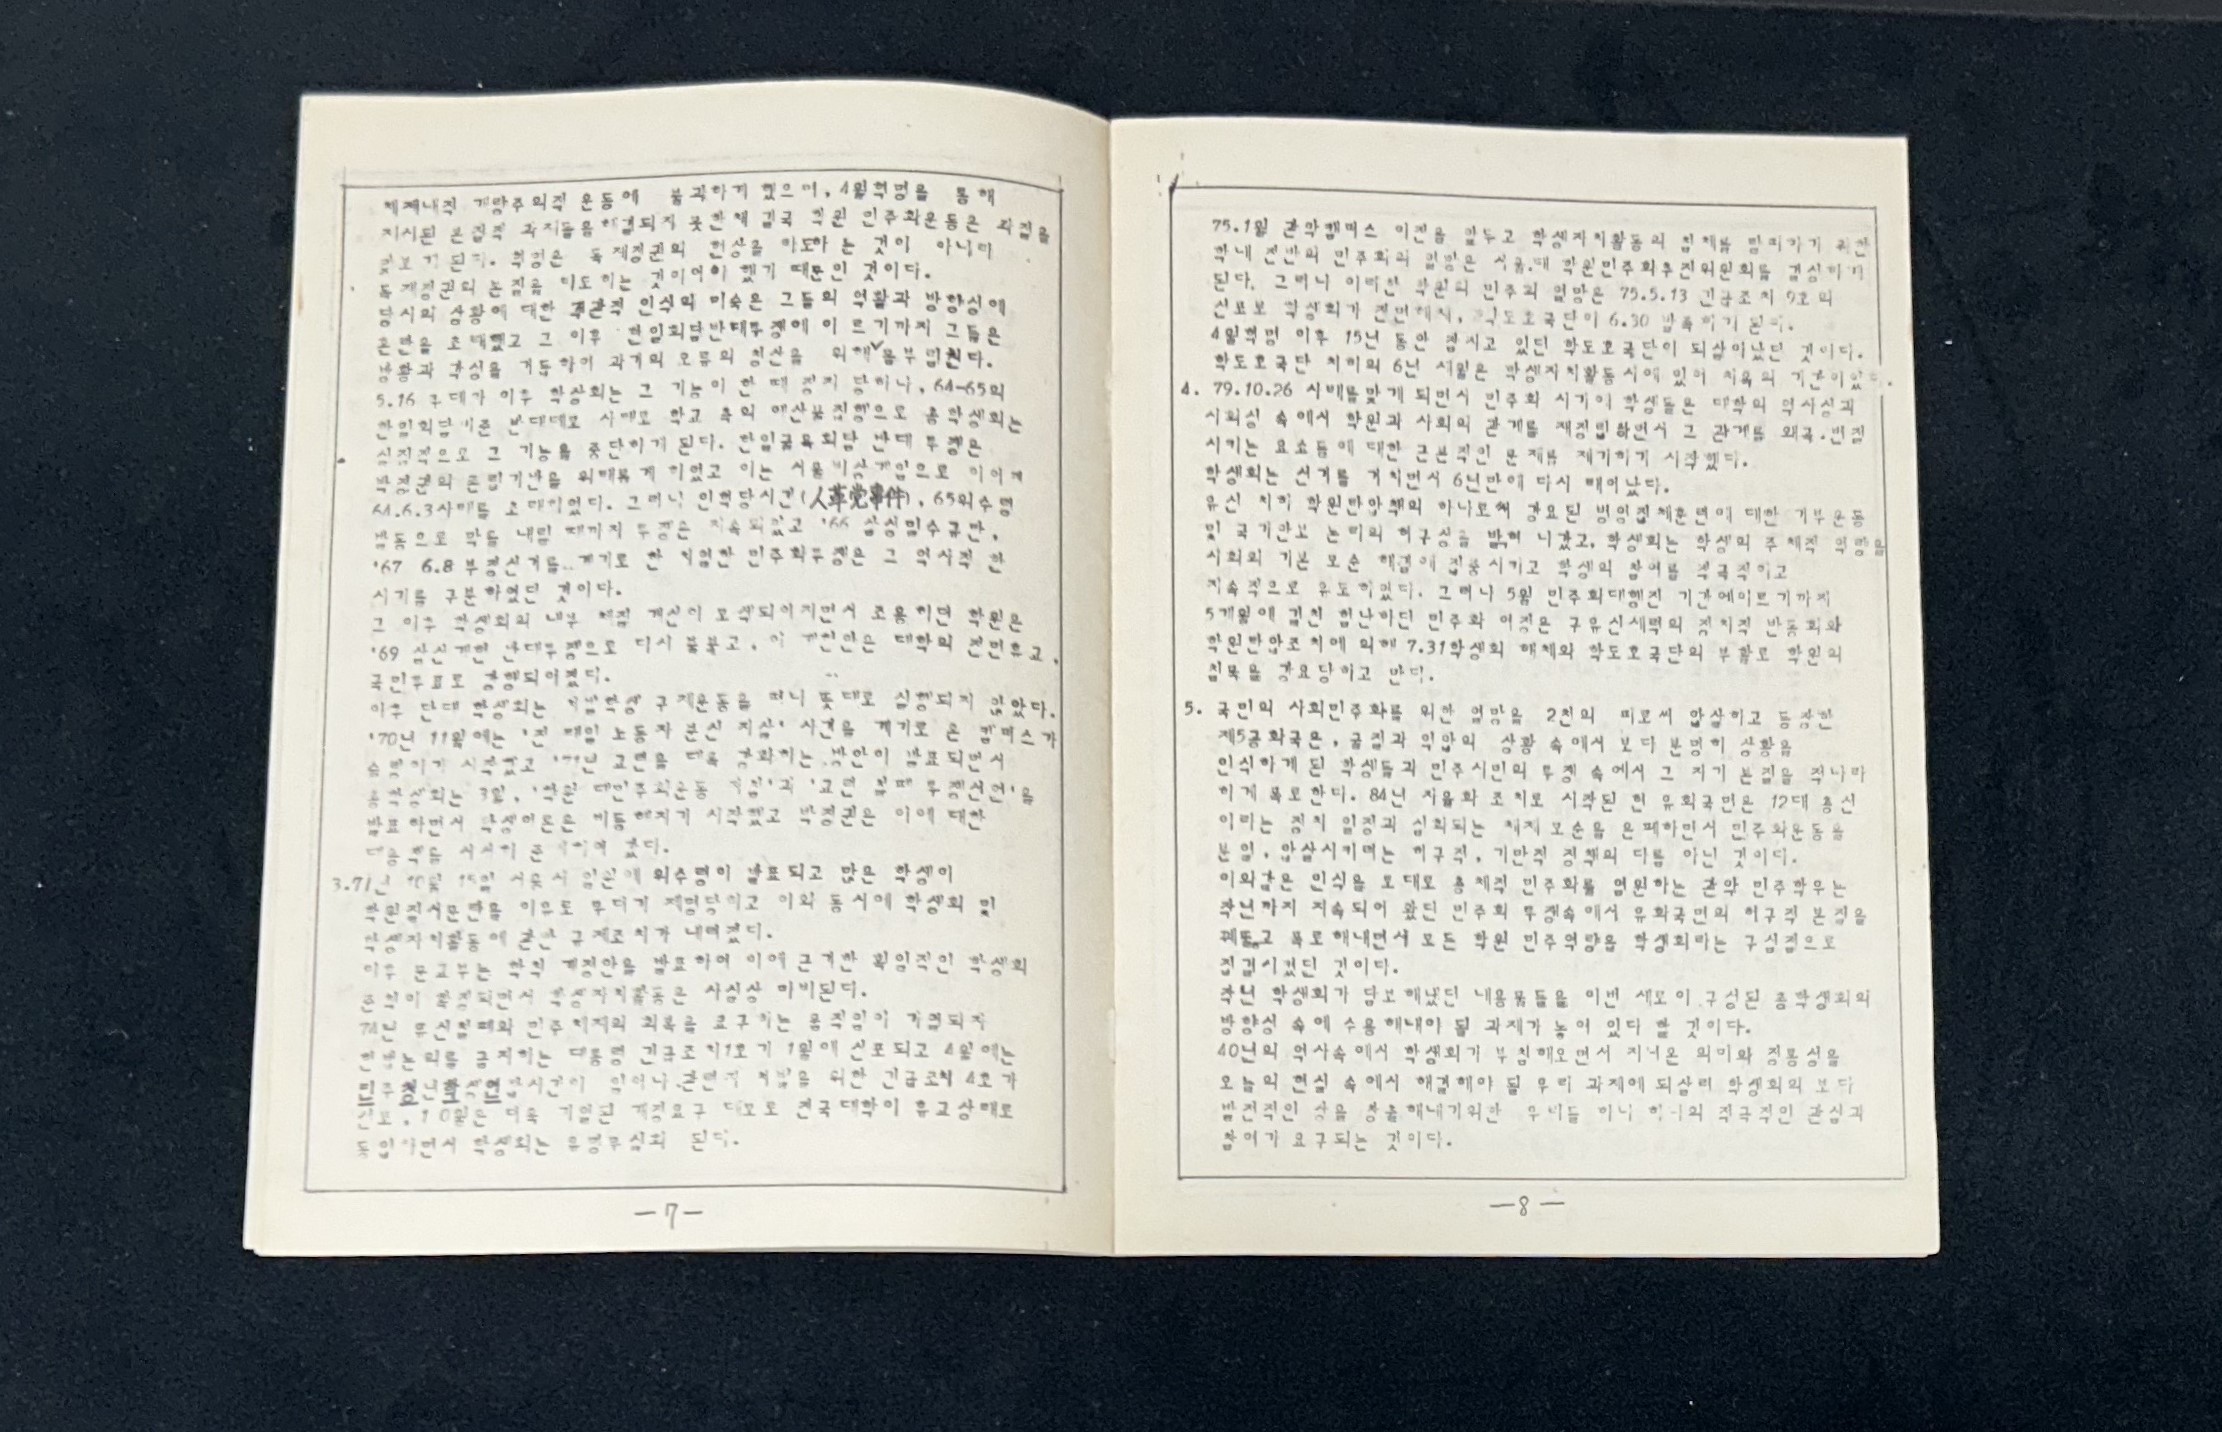 체제내적 개량주의적 운동에 불과하기 했으며, 4월혁명을 통해
지시된 본질적 과제들을 해결되지 못한채 결국 학원 민주화운동은 좌절을
맛보게 된다. 혁명은 독재정권의 현상을 타도하는 것이 아니라
독재정권의 본질을 타도하는 것이어야 했기 때문인 것이다.
당시의 상황에 대한 객관적 인식의 미숙은 그들의 역활과 방향성에
혼란을 초래했고 그 이후 한일회담반대투쟁에 이르기까지 그들은
방황과 각성을 거듭하여 과거의 오류의 청산을 위해 몸부림친다.
5.16 쿠데타 이후 학생회는 그 기능이 한 때 정지 당하나, 64-65의
한일회담 반대데모 사태로 학교 측의 예산불집행으로 총학생회는
실질적으로 그 기능을 중단하게 된다. 한일굴욕회담 반대 투쟁은
박정권의 존립기반을 위태롭게 하였고 이는 서울 비상계엄으로 이어져
64.6.3사태를 초래하였다. 그러나 인혁당사건(人革党事件), 65위수령
발동으로 막을 내릴 때까지 투쟁은 지속되었고 '66 삼성밀수규탄,
'67 6.8 부정선거를 계기로 한 치열한 민주화투쟁은 그 역사적 한
시기를 구분하였던 것이다.
그 이후 학생회의 내부 체질 개선이 모색되어지면서 조용하던 학원은
'69 삼선개헌 반대투쟁으로 다시 불붙고, 이 개헌안은 대학의 전면휴교,
국민투표로 강행되어졌다.
이후 단대 학생회는 제반학생 구제운동을 펴나 뜻대로 실행되지 않았다.
'70년 11월에는 '전태일 노동자 분신 자살' 사건을 계기로 온 캠퍼스가
술렁이기 시작했고 '71년 교련을 더욱 강화하는 방안이 발표되면서
총학생회는 3월, '학원 민주화운동 지침'과 '교련 철폐 투쟁선언'을
발표하면서 학생여론은 비등해지기 시작했고 박정권은 이에 대한
대응책을 서서히 준비하여 갔다.
3.71년 10월 15일 서울시 일원에 위수령이 발표되고 많은 학생이
학원질서문란을 이유로 무더기 제명당하고 이와 동시에 학생회 및
학생자치활동에 관한 규제조치가 내려졌다.
이후 문교부는 학칙 개정안을 발표하여 이에 근거한 획일적인 학생회
손학이 확정되면서 학생자치활동은 사실상 마비된다.
72년 유신철폐와 민주체제의 회복을 요구하는 움직임이 가열되자
헌법논의를 금지하는 대통령 긴급조치1호가 1월에 선포되고 4월에는
민청학련사건이 일어나 관련자 처벌을 위한 긴급조치 4호가
선포. 10월은 더욱 가열된 개정요구 데모로 전국대학이 휴교상태로
돌입하면서 학생회는 유명무실화 된다.
-7-
75.1월 관악캠퍼스 이전을 앞두고 학생자치활동의 침체를 탈피하기 위한
학내 전반의 민주화의 열망은 서울대 학원민주화추진위원회를 결성하기
된다. 그러나 이러한 학원의 민주화 열망은 75.5.13 긴급조치 9호의
선포로 학생회가 전면해체, 학도호국단이 6.30 발족하기 된다.
4월혁명 이후 15년 동안 잠자고 있던 학도호국단이 되살아났던 것이다.
학도호국단 치하의 6년 세월은 학생자치활동사에 있어 치욕의 기간이었다.
4. 79.10.26 사태를맞게 되면서 민주화 시기에 학생들은 대학의 역사성과
사회성 속에서 학원과 사회의 관계를 재정립하면서 그 관계를 왜곡.변질
시키는 요소들에 대한 근본적인 문제를 제기하기 시작했다.
학생회는 선거를 거치면서 6년만에 다시 태어났다.
유신 치하 학원탄압책의 하나로써 강요된 병영집체훈련에 대한 거부운동
및 국가안보 논리의 허구성을 밝혀 나갔고, 학생회는 학생의 주체적 역량을
사회의 기본 모순 해결에 집중시키고 학생의 참여를 적극적이고
지속적으로 유도하였다. 그러나 5월 민주화대행진 기간에이르기까지
5개월에 걸친 험난하던 민주화 여정은 구유신세력의 정치적 반동화와
학원탄압조치에 의해 7.31학생회 해체와 학도호국단의 부활로 학원의
침묵을 강요당하고 만다.
5. 국민의 사회민주화를 위한 열망을 2천의 피로써 압살하고 등장한
제5공화국은, 굴절과 억압의 상황 속에서 보다 분명히 상황을
인식하게 된 학생들과 민주시민의 투쟁 속에서 그 자기 본질을 적나라
하게 폭로한다. 84년 자율화 조치로 시작된 현 유화국면은 12대 총선
이라는 정치 일정과 심화되는 체제 모순을 은폐하면서 민주화운동을
분열, 압살시키려는 허구적, 기만적 정책의 다름 아닌 것이다.
이와같은 인식을 토대로 총체적 민주화를 염원하는 관악 민주학우는
작년까지 지속되어 왔던 민주화 투쟁속에서 유화국면의 허구적 본질을
꿰뚫고 폭로해내면서 모든 학원 민주역량을 학생회라는 구심점으로
집결시켰던 것이다.
작년 학생회가 담보해냈던 내용물들을 이번 새로이 구성된 총학생회의
방향성 속에 수용해내야 될 과제가 놓여 있다 할 것이다.
40년의 역사속에서 학생회가 부침해오면서 지녀온 의미와 정통성을
오늘의 현실 속에서 해결해야 될 우리 과제에 되살려 학생회의 보다
발전적인 상을 창출해내기위한 우리들 하나 하나의 적극적인 관심과
참여가 요구되는 것이다.
-8-